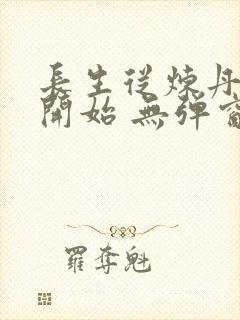 長生從煉丹
開始 無彈
羅奪魁